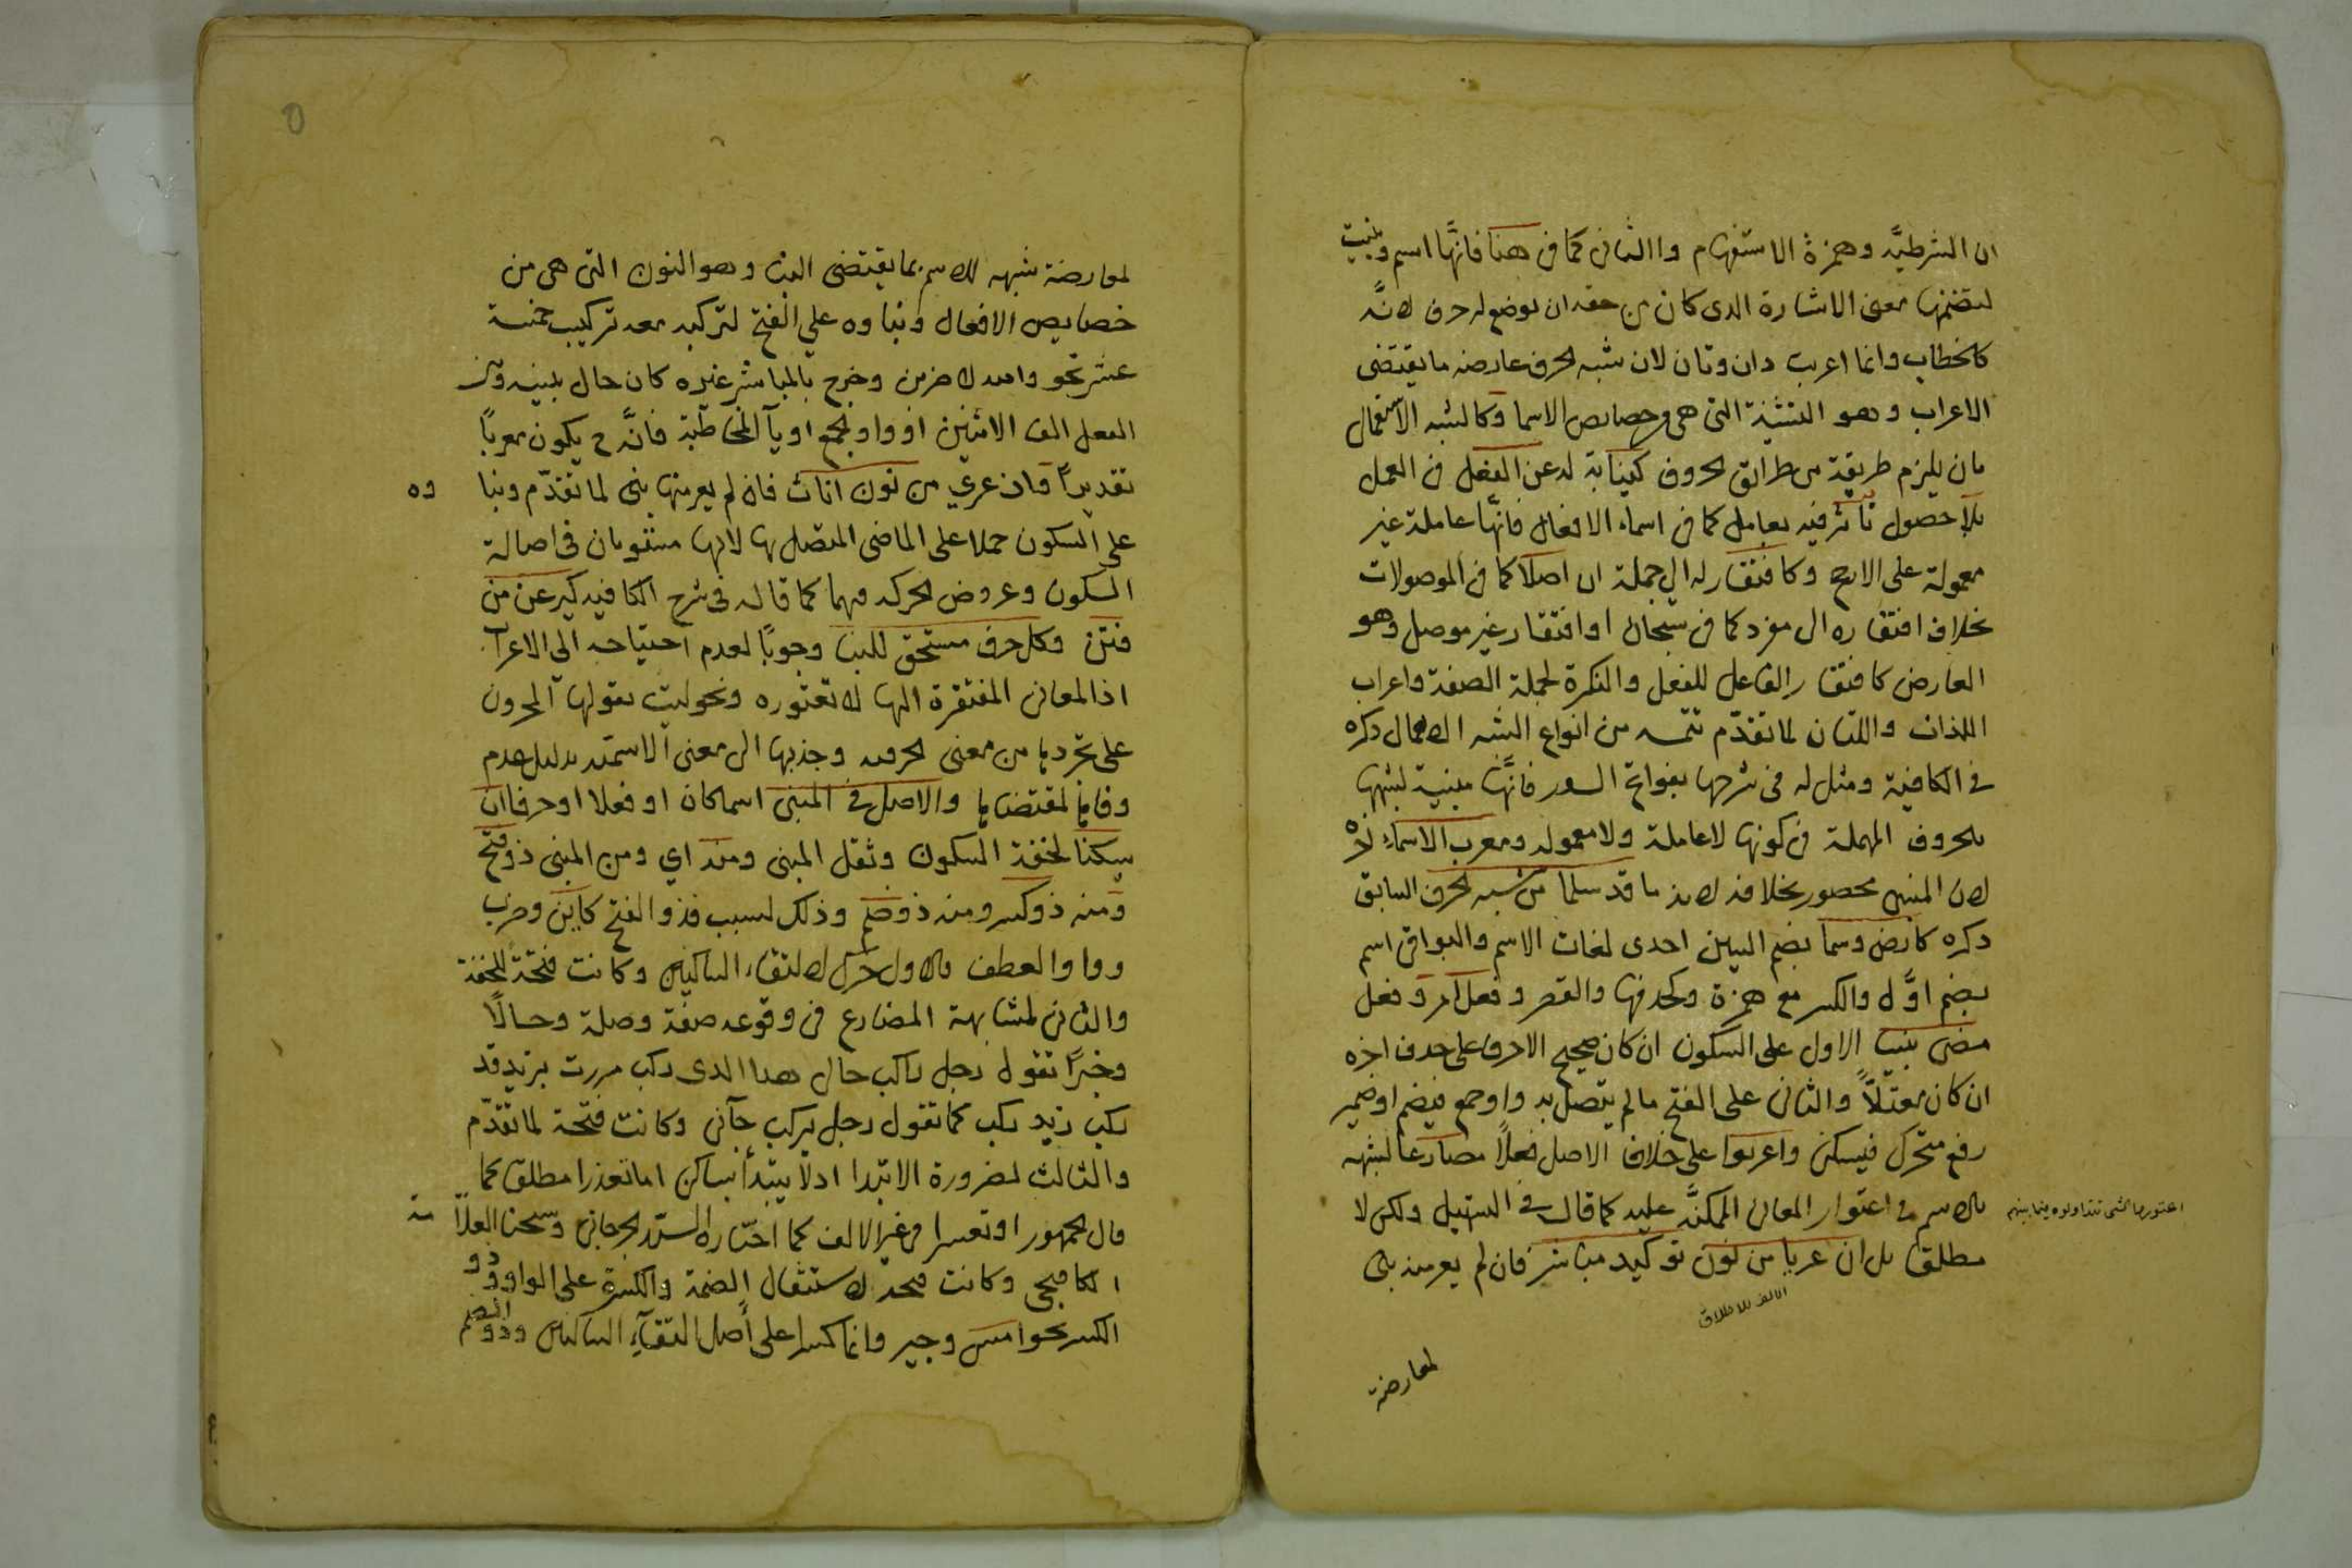 ان الشرطيَّه وهمزة الاستفهام والثانى كما فى هنا فانَّها اسم وبنيت
لتضمنها معنى الاشارة الدى كان من حقه ان يوضع له حرف لانَّه
كالخطاب وانما اعرب دان وتان لان شبه الحرف عارضه ما يقتضى
الاعراب وهو التثنية التى هى من خصايص الاسما وكالشبه الاستعمالى
بان يلزم طريقة من طرائق الحروف كنيابة له عن الفعل فى العمل
بلا حصول تأثر فيه بعامل كما فى اسماء الافعال فانَّها عاملة غير
معمولة على الارجح وكافتقار له الى جملة ان اصلا كما فى الموصولات
بخلاف افتقاره الى مفرد كما فى سبحان او افتقار غير موصل وهو
العارض كافتقار الفاعل للفعل والنكرة لجملة الصفة واعراب
اللذان واللتان لما تقدّم تتمه من انواع الشبه الاهمالى دكره
فى الكافية ومثل له فى شرحها بفواتح السور فانَّها مبنية لشبهها
بالحروف المهملة فى كونها لا عاملة ولا معموله ومعرب الاسماء اخره
لان المبنى محصور بخلافه لانه ما قد سلما من شبه الحرف السابق
دكره كارض وسما بضم السين احدى لغات الاسم والبواقى اسم
بضم اوَّله والكسر مع همزة وبحدفها والقصر وفعل امر وفعل
مضى بنيا الاول على السكون ان كان صحيح الاخر وعلى حدف اخره
ان كان معتلّاً والثانى على الفتح مالم يتصل به واو جمع فيضم او ضمير
رفع متحرك فيسكن واعربوا على خلاف الاصل فعلاً مضارعا لشبهه
بالاسم فى اعتوار المعانى الممكنَّه عليه كما قال فى التسهيل ولكن لا
مطلقا بل ان عريا من نون توكيد مباشر فان لم يعر منه بنى
اعتوروا الشى تداولوه فيما بينهم
الالف للاطلاق
لمعارضة
لمعارضة شبهه للاسم بما يقتضى البنا وهو النون التى هى من
خصايص الافعال وبناوه على الفتح لتركبه معه تركيب خمسة
عشر نحو والله لاضربن وخرج بالمباشر غيره كان حال بينه وبين
الفعل الف الاثنين او واو الجمع او يآ المخاطبة فانَّه ح يكون معربًا
تقديرًا وان عري من نون اناث فان لم يعر منها بنى لما تقدّم وبنا
وه
على السكون حملا على الماضى المتصل بها لانهما مستويان فى اصالة
السكون وعروض الحركه فيهما كما قاله فى شرح الكافيه كيرعن من
فتن وكل حرف مستحق للبنا وجوبًا لعدم احتياجه الى الاعراب
اذ المعانى المفتقرة اليها لا تعتوره ونحو ليت يقولها المحزون
على تجردها من معنى الحرفيه وجذبها الى معنى الاسميه بدليل عدم
وفائها لمقتضاها والاصل فى المبنى اسما كان او فعلا او حرفا ان
يسكنا لخفة السكون وثقل المبنى ومنه اي ومن المبنى ذو فتح
ومنه ذو كسر ومنه ذو ضم وذلك لسبب فذو الفتح كاين وضرب
وواو العطف فالاول حرك لالتقاء الساكنين وكانت فتحة للخفة
والثانى لمشابهة المضارع فى وقوعه صفة وصلة وحالًا
وخبرًا تقول رجل راكب حال هدا الدى ركب مررت بزيد قد
ركب زيد ركب كما تقول رجل يركب جآنى وكانت فتحة لما تقدّم
والثالث لضرورة الابتدا اد لا يبتدأ بساكن اما تعذرا مطلقا كما
قال الجمهور او تعسرا فى غير الالف كما اختاره السيد الجرجانى وشيخنا العلاّ مه
الكافيجى وكانت فتحه لاستثقال الضمة والكسرة على الواو وذو
الكسر نحو امس وجير وانما كسرا على أصل التقآءِ الساكنين وذو الضم